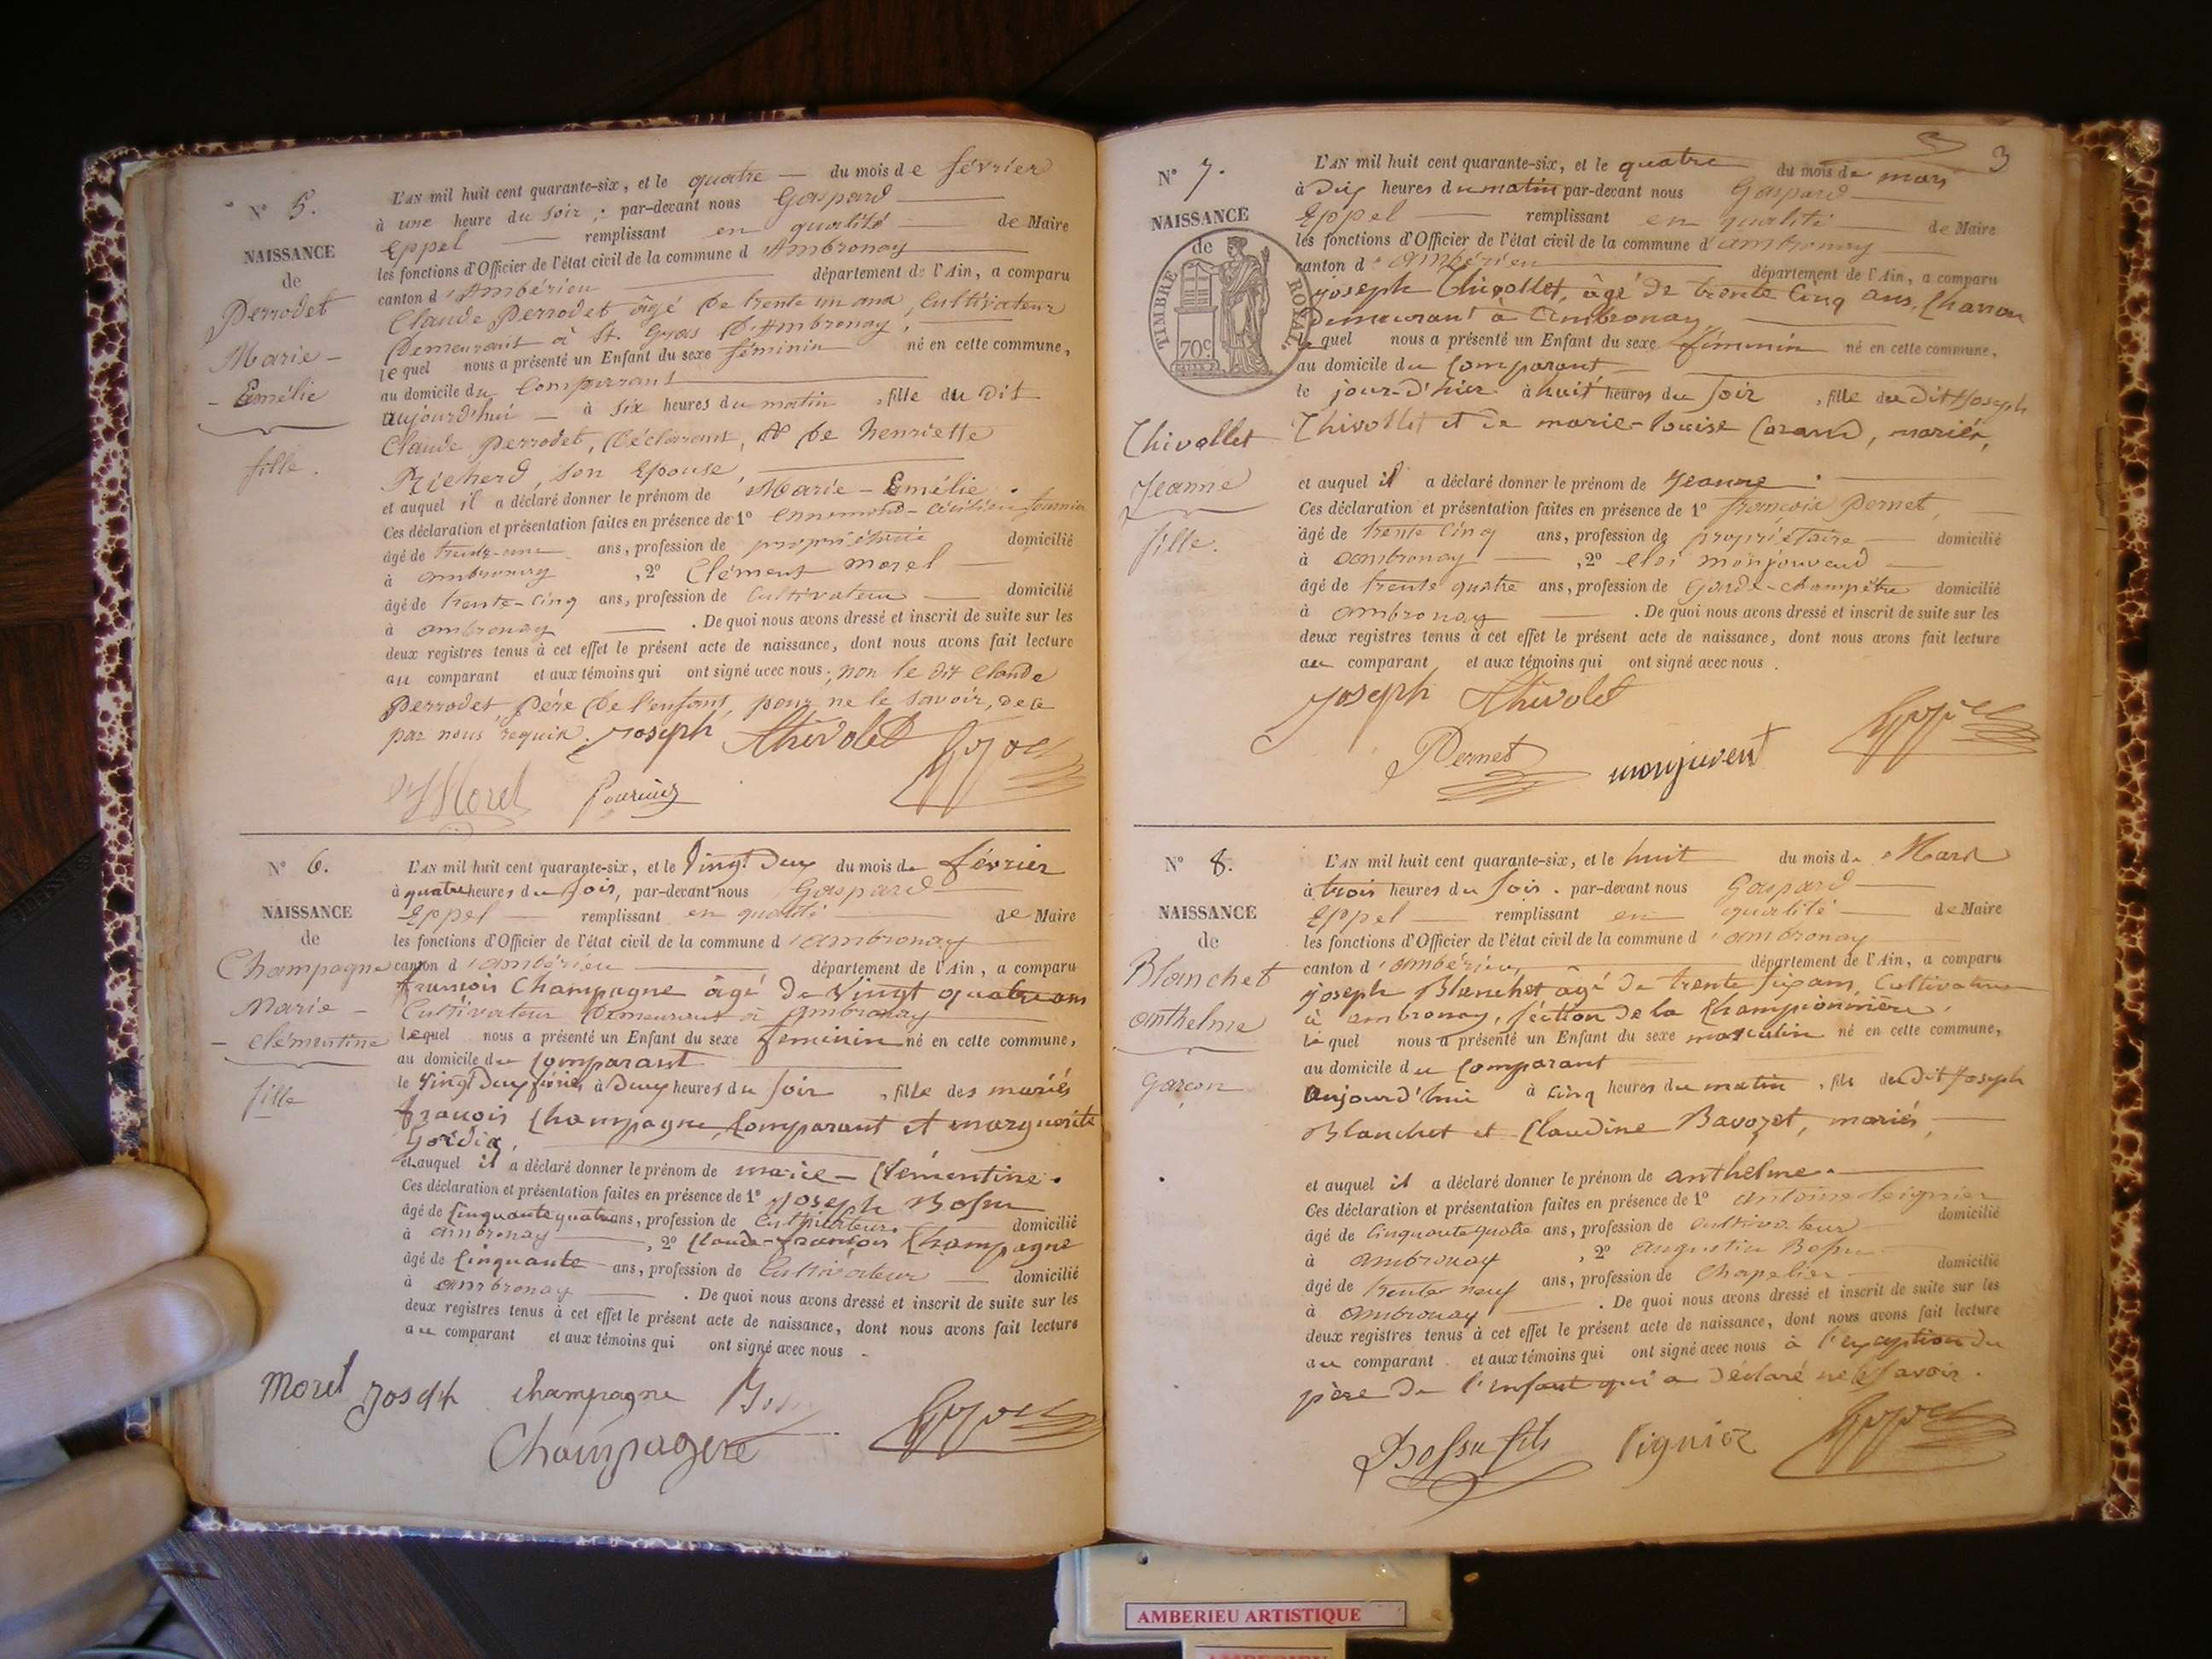 N° 5.
NAISSANCE
de
Perrodet
Marie -
- Emélie
fille.
L'AN mil huit cent quarante-six, et le quatre — du mois de février
à une heure du soir ; par-devant nous Gaspard
Eppel — remplissant en qualité — de Maire
les fonctions d'Officier de l'état civil de la commune d'Ambronay
canton d'Ambérieu — département de l'Ain, a comparu
Claude Perrodet âgé de trente un ans, Cultivateur
Demeurant à St. d'Ambronay,
lequel nous a présenté un Enfant du sexe féminin né en cette commune,
au domicile du Comparant
aujourd'hui — à six heures du matin, fille du dit
Claude Perrodet, Déclarant, & de henriette
Richerd, son Epouse,
et auquel il a déclaré donner le prénom de Marie - Emélie.
Ces déclaration et présentation faites en présence de 1°
âgé de ans, profession de propriétaire domicilié
à ambronay, 2° Clément morel
âgé de trente-cinq ans, profession de Cultivateur — domicilié
à ambronay — . De quoi nous avons dressé et inscrit de suite sur les
deux registres tenus à cet effet le présent acte de naissance, dont nous avons fait lecture
au comparant et aux témoins qui ont signé avec nous, non le dit Claude
Perrodet, père de l'enfant, pour ne le savoir, de ce
par nous requis. Joseph thivolet
Morel
N° 6.
NAISSANCE
de
Champagne
Marie -
- Clémentine
fille
L'AN mil huit cent quarante-six, et le vingt Deux du mois de février
à quatre heures du soir, par-devant nous Gaspard
Eppel — remplissant en qualité — de Maire
les fonctions d'Officier de l'état civil de la commune d'ambronay
canton d'ambérieu — département de l'Ain, a comparu
françois Champagne âgé de vingt quatre ans
Cultivateur Demeurant à Ambronay
lequel nous a présenté un Enfant du sexe féminin né en cette commune,
au domicile du Comparant
le vingt Deux février à Deux heures du soir, fille des mariés
françois Champagne, Comparant et marguerite
et auquel il a déclaré donner le prénom de marie - Clémentine.
Ces déclaration et présentation faites en présence de 1° Joseph Bossu
âgé de Cinquante quatre ans, profession de Cultivateur domicilié
à ambronay —, 2° Claude-françois Champagne
âgé de Cinquante — ans, profession de Cultivateur — domicilié
à ambronay — . De quoi nous avons dressé et inscrit de suite sur les
deux registres tenus à cet effet le présent acte de naissance, dont nous avons fait lecture
au comparant et aux témoins qui ont signé avec nous.
Morel Joseph champagne
Champagne
3
N° 7.
NAISSANCE
de
TIMBRE ROYAL
70c
Thivollet
Jeanne
fille.
L'AN mil huit cent quarante-six, et le quatre du mois de mars
à Dix heures du matin par-devant nous Gaspard
Eppel — remplissant en qualité — de Maire
les fonctions d'Officier de l'état civil de la commune d'ambronay
canton d'Ambérieu — département de l'Ain, a comparu
joseph Thivollet, âgé de trente Cinq ans, Charron
Demeurant à Ambronay
lequel nous a présenté un Enfant du sexe féminin né en cette commune,
au domicile du Comparant
le jour-d'hier à huit heures du soir, fille du Dit Joseph
Thivollet et de marie-louise, mariés,
et auquel il a déclaré donner le prénom de Jeanne.
Ces déclaration et présentation faites en présence de 1° françois Pernet,
âgé de trente Cinq ans, profession de propriétaire — domicilié
à ambronay —, 2° eloi monjouvend
âgé de trente quatre ans, profession de Garde-champêtre domicilié
à ambronay — . De quoi nous avons dressé et inscrit de suite sur les
deux registres tenus à cet effet le présent acte de naissance, dont nous avons fait lecture
au comparant et aux témoins qui ont signé avec nous.
Joseph thivolet
Pernet monjuvent
N° 8.
NAISSANCE
de
Blanchet
anthelme
Garçon
L'AN mil huit cent quarante-six, et le huit du mois de Mars
à trois heures du soir. par-devant nous Gaspard
Eppel — remplissant en qualité — de Maire
les fonctions d'Officier de l'état civil de la commune d'ambronay
canton d'ambérieu, département de l'Ain, a comparu
joseph Blanchet âgé de trente six ans, Cultivateur
à ambronay, section de la Championnière,
lequel nous a présenté un Enfant du sexe masculin né en cette commune,
au domicile du Comparant
aujourd'hui à cinq heures du matin, fils du Dit Joseph
Blanchet et Claudine Bavozet, mariés,
et auquel il a déclaré donner le prénom de anthelme.
Ces déclaration et présentation faites en présence de 1° antoine
âgé de Cinquante quatre ans, profession de cultivateur domicilié
à ambronay, 2° augustin Bossu
âgé de trente neuf ans, profession de Chapelier domicilié
à ambronay — . De quoi nous avons dressé et inscrit de suite sur les
deux registres tenus à cet effet le présent acte de naissance, dont nous avons fait lecture
au comparant et aux témoins qui ont signé avec nous à l'exception du
père de l'enfant qui a déclaré ne le savoir.
Bossu fils
AMBERIEU ARTISTIQUE
AMBERIEU